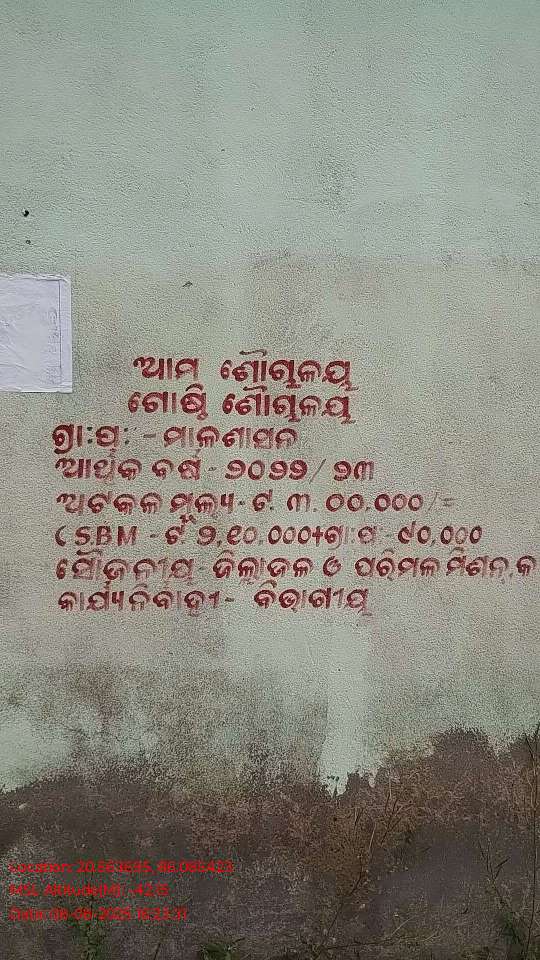 ଆମ ଶୌଚାଳୟ
ଗୋଷ୍ଠି ଶୌଚାଳୟ
ଗ୍ରା:ପ: - ମାଳଶାସନ
ଆର୍ଥିକ ବର୍ଷ - ୨୦୨୨/୨୩
ଅଟକଳ ମୂଲ୍ୟ - ଟ. ୩.୦୦.୦୦୦/=
(SBM - ଟ ୨,୧୦,୦୦୦+ଗ୍ରା:ପ: - ୯୦,୦୦୦
ସୌଜନୀୟ - ଜିଲ୍ଲାଜଳ ଓ ପରିମଳ ମିଶନ,କ
କାର୍ଯ୍ୟନିବାହୀ - ବିଭାଗୀୟ
Location: 20.563695, 86.085423
MSL Altitude(M): -42.15
Date: 08-08-2025 16:23:31